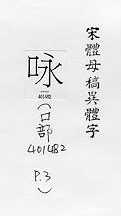 宋體母稿異體字
咏
401482
(口部
401482
P.3)